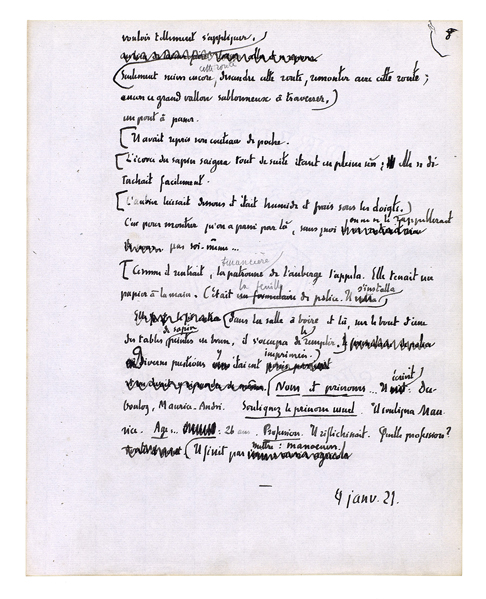 8
voulois tellement s'appliquer.
cette route
(Seulement suivre encore, descendre cette route, remonter avec cette route ;
encore ce grand vallon sablonneux à traverser,)
un pont à passer.
[Il avait repris son couteau de poche.
[L'écorce du sapin saigna tout de suite étant en pleine sève ; elle se dé-
tachait facilement.
[L'aubier luisait dessous et était humide et frais sous les doigts.)
C'est pour montrer qu'on a passé par là, sans quoi on ne se rappellerait
pas soi-même...
financière
[Comme il rentrait, la patronne de l'auberge l'appela. Elle tenait un
la feuille s'installa
papier à la main. C'était un formulaire de police. Il
(dans la salle à boire et là, sur le bout d'une
de sapin
des tables peintes en brun, il s'occupa de le remplir.
imprimées.)
Diverses questions y étaient
(Nom et prénoms... Il écrivit : Du-
bouloz, Maurice-André. Soulignez le prénom usuel. Il souligna Mau-
rice. Age... : 26 ans. Profession. Il réfléchissait. Quelle profession?
(Il finit par mettre : manoeuvre.
4 janv. 21.